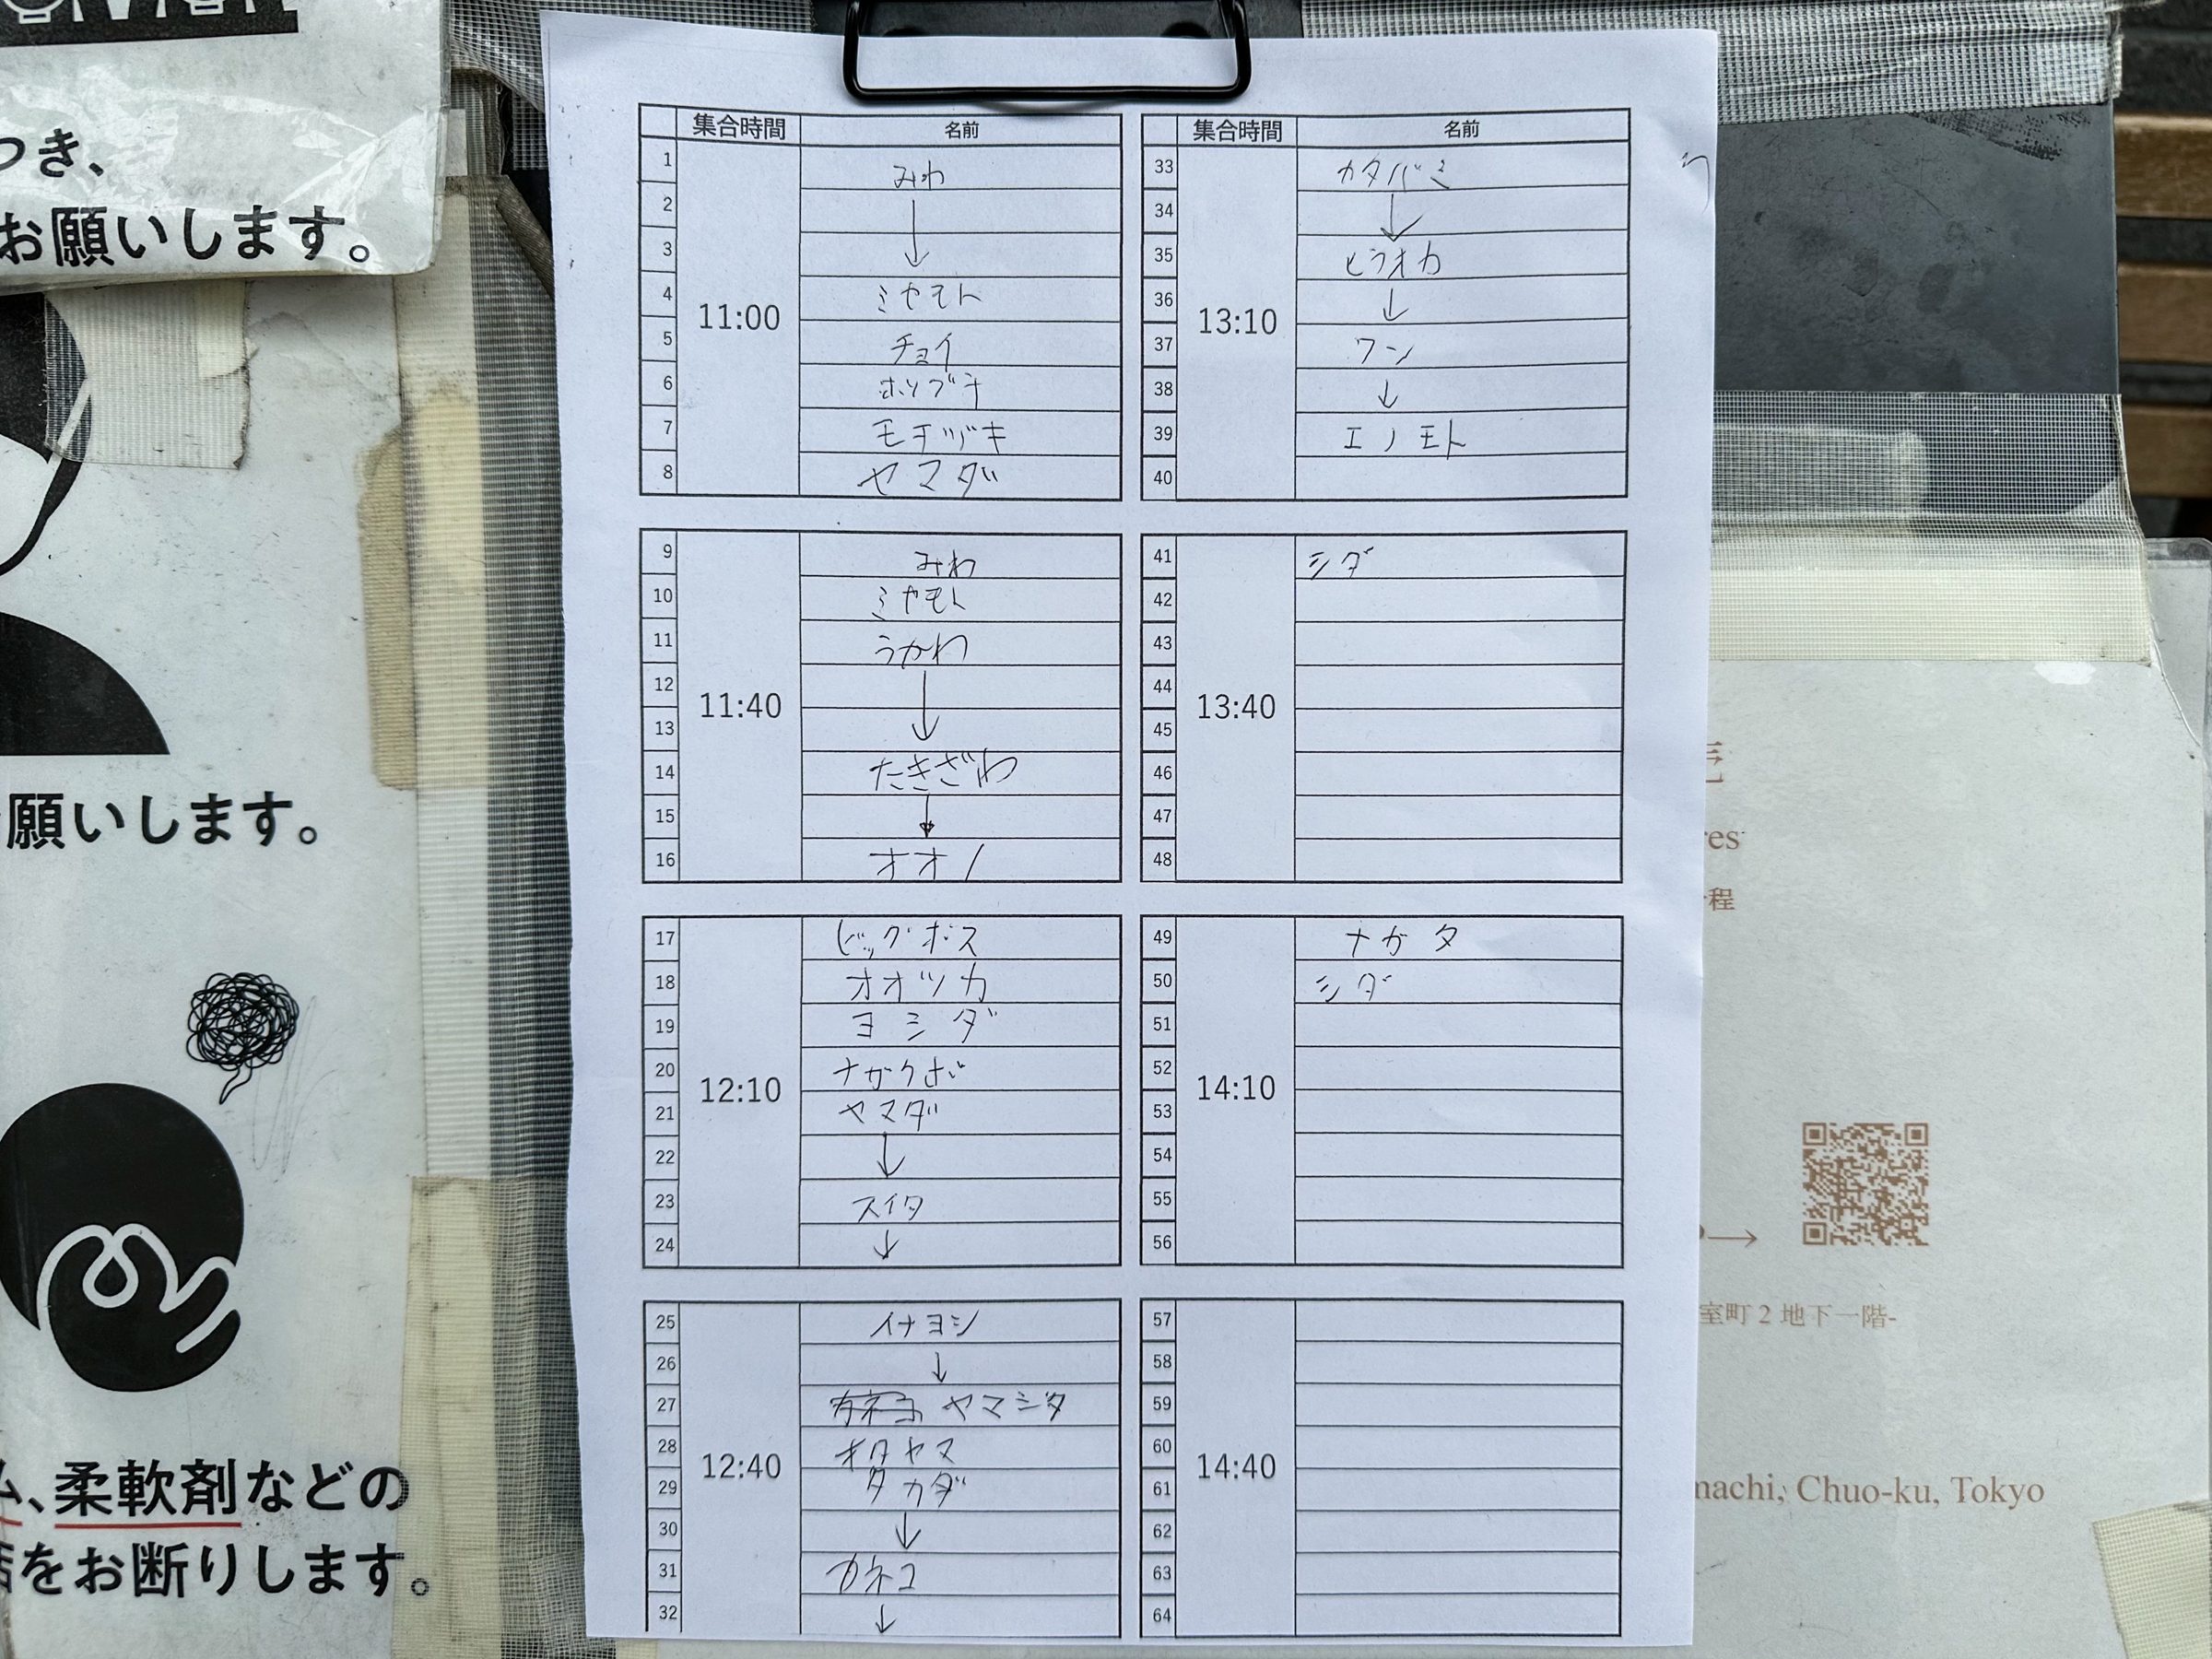 つき、
お願いします。
願いします。
ム、柔軟剤などの
店をお断りします。
集合時間 名前
11:00
1 みわ
2 ↓
3
4 ミヤモト
5 チョイ
6 ホリブチ
7 モチヅキ
8 ヤマダ
11:40
9 みわ
10 ミヤモト
11 うかわ
12 ↓
13
14 たきざわ
15 ↓
16 オオノ
12:10
17 ビッグボス
18 オオツカ
19 ヨシダ
20 ナガクボ
21 ヤマダ
22 ↓
23 スイタ
24 ↓
12:40
25 イナヨシ
26 ↓
27 カネコ ヤマシタ
28 オタヤマ
29 タカダ
30 ↓
31 カネコ
32 ↓
集合時間 名前
13:10
33 カタバミ
34 ↓
35 ヒラオカ
36 ↓
37 ワン
38 ↓
39 エノモト
40
13:40
41 シダ
42
43
44
45
46
47
48
14:10
49 ナガタ
50 シダ
51
52
53
54
55
56
14:40
57
58
59
60
61
62
63
64
res
程
→
室町2地下一階-
machi, Chuo-ku, Tokyo